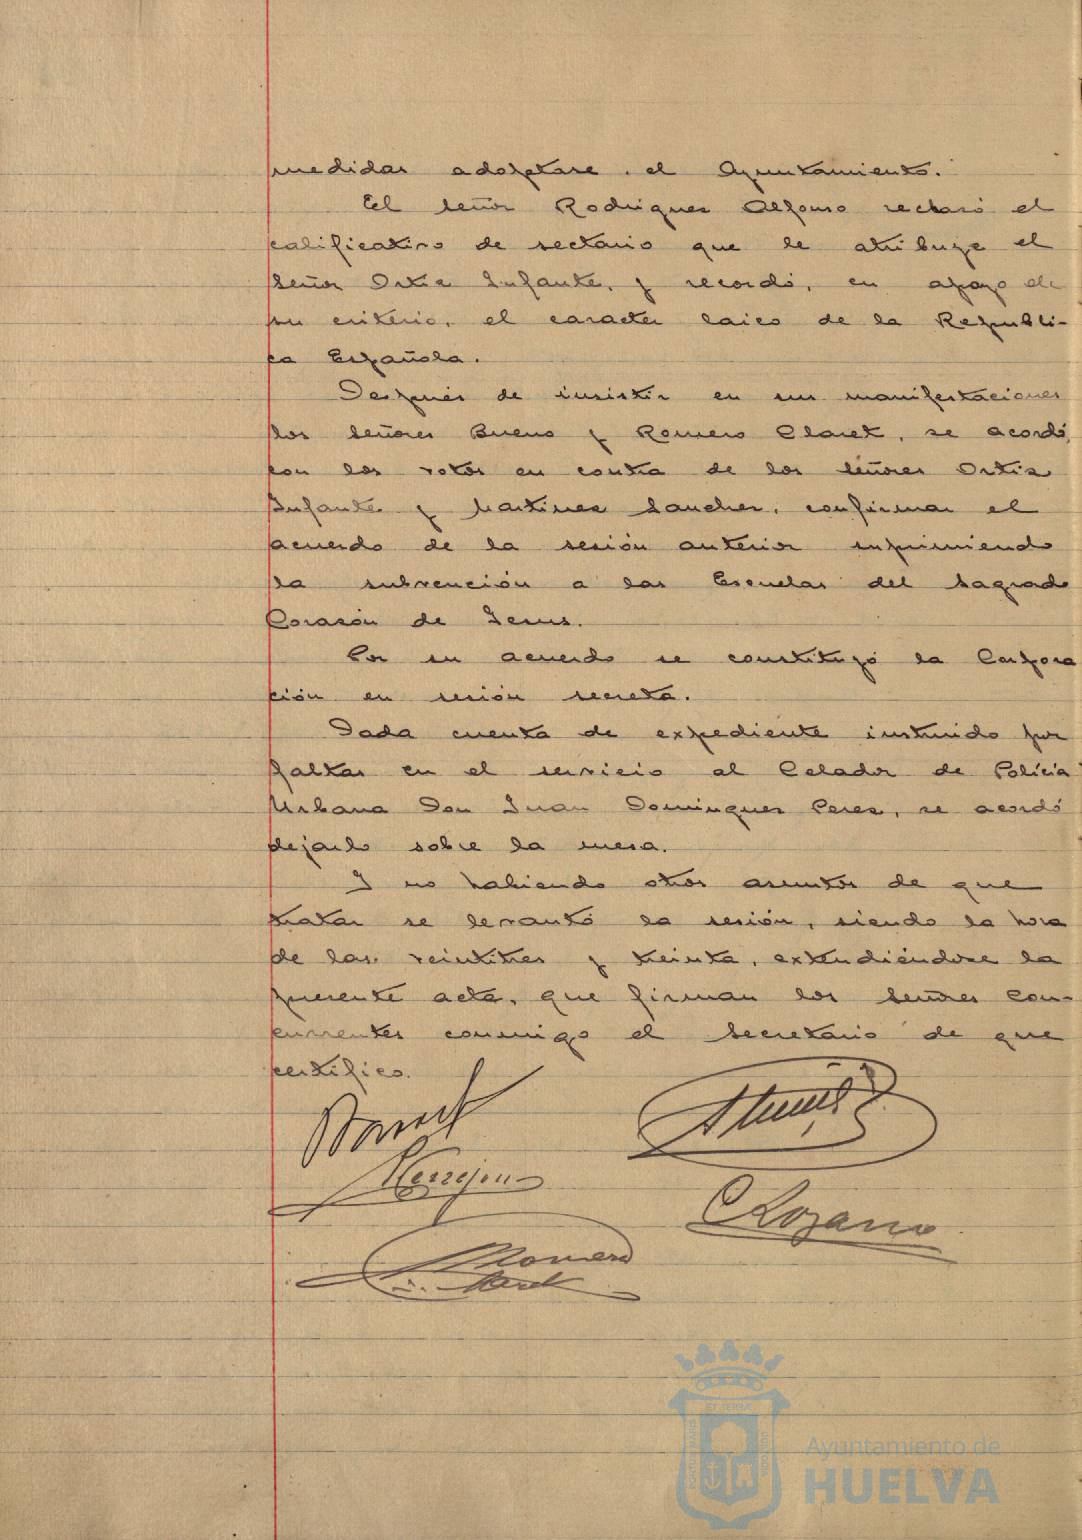 medidas adoptare el Ayuntamiento.
El señor Rodriguez Alfonso rechazó el
calificativo de sectario que le atribuye el
señor Ortiz Infante, y recordó, en apoyo de
su criterio, el caracter laico de la Republi-
ca Española.
Después de insistir en sus manifestaciones
los señores Bueno y Romero Claret, se acordó,
con los votos en contra de los señores Ortiz
Infante y Martinez Sanchez, confirmar el
acuerdo de la sesión anterior suprimiendo
la subvención a las Escuelas del Sagrado
Corazón de Jesus.
Por su acuerdo se constituyó la Corpora
ción en sesión secreta.
Dada cuenta de expediente instruido por
faltas en el servicio al Celador de Policia
Urbana Don Juan Dominguez Perez, se acordó
dejarlo sobre la mesa.
Y no habiendo otros asuntos de que
tratar se levantó la sesión, siendo la hora
de las veintitres y treinta, extendiéndose la
presente acta, que firman los señores con-
currentes conmigo el Secretario de que
certifico.
Terrejon
C Lozano
Romero
Claret
Ayuntamiento de
HUELVA